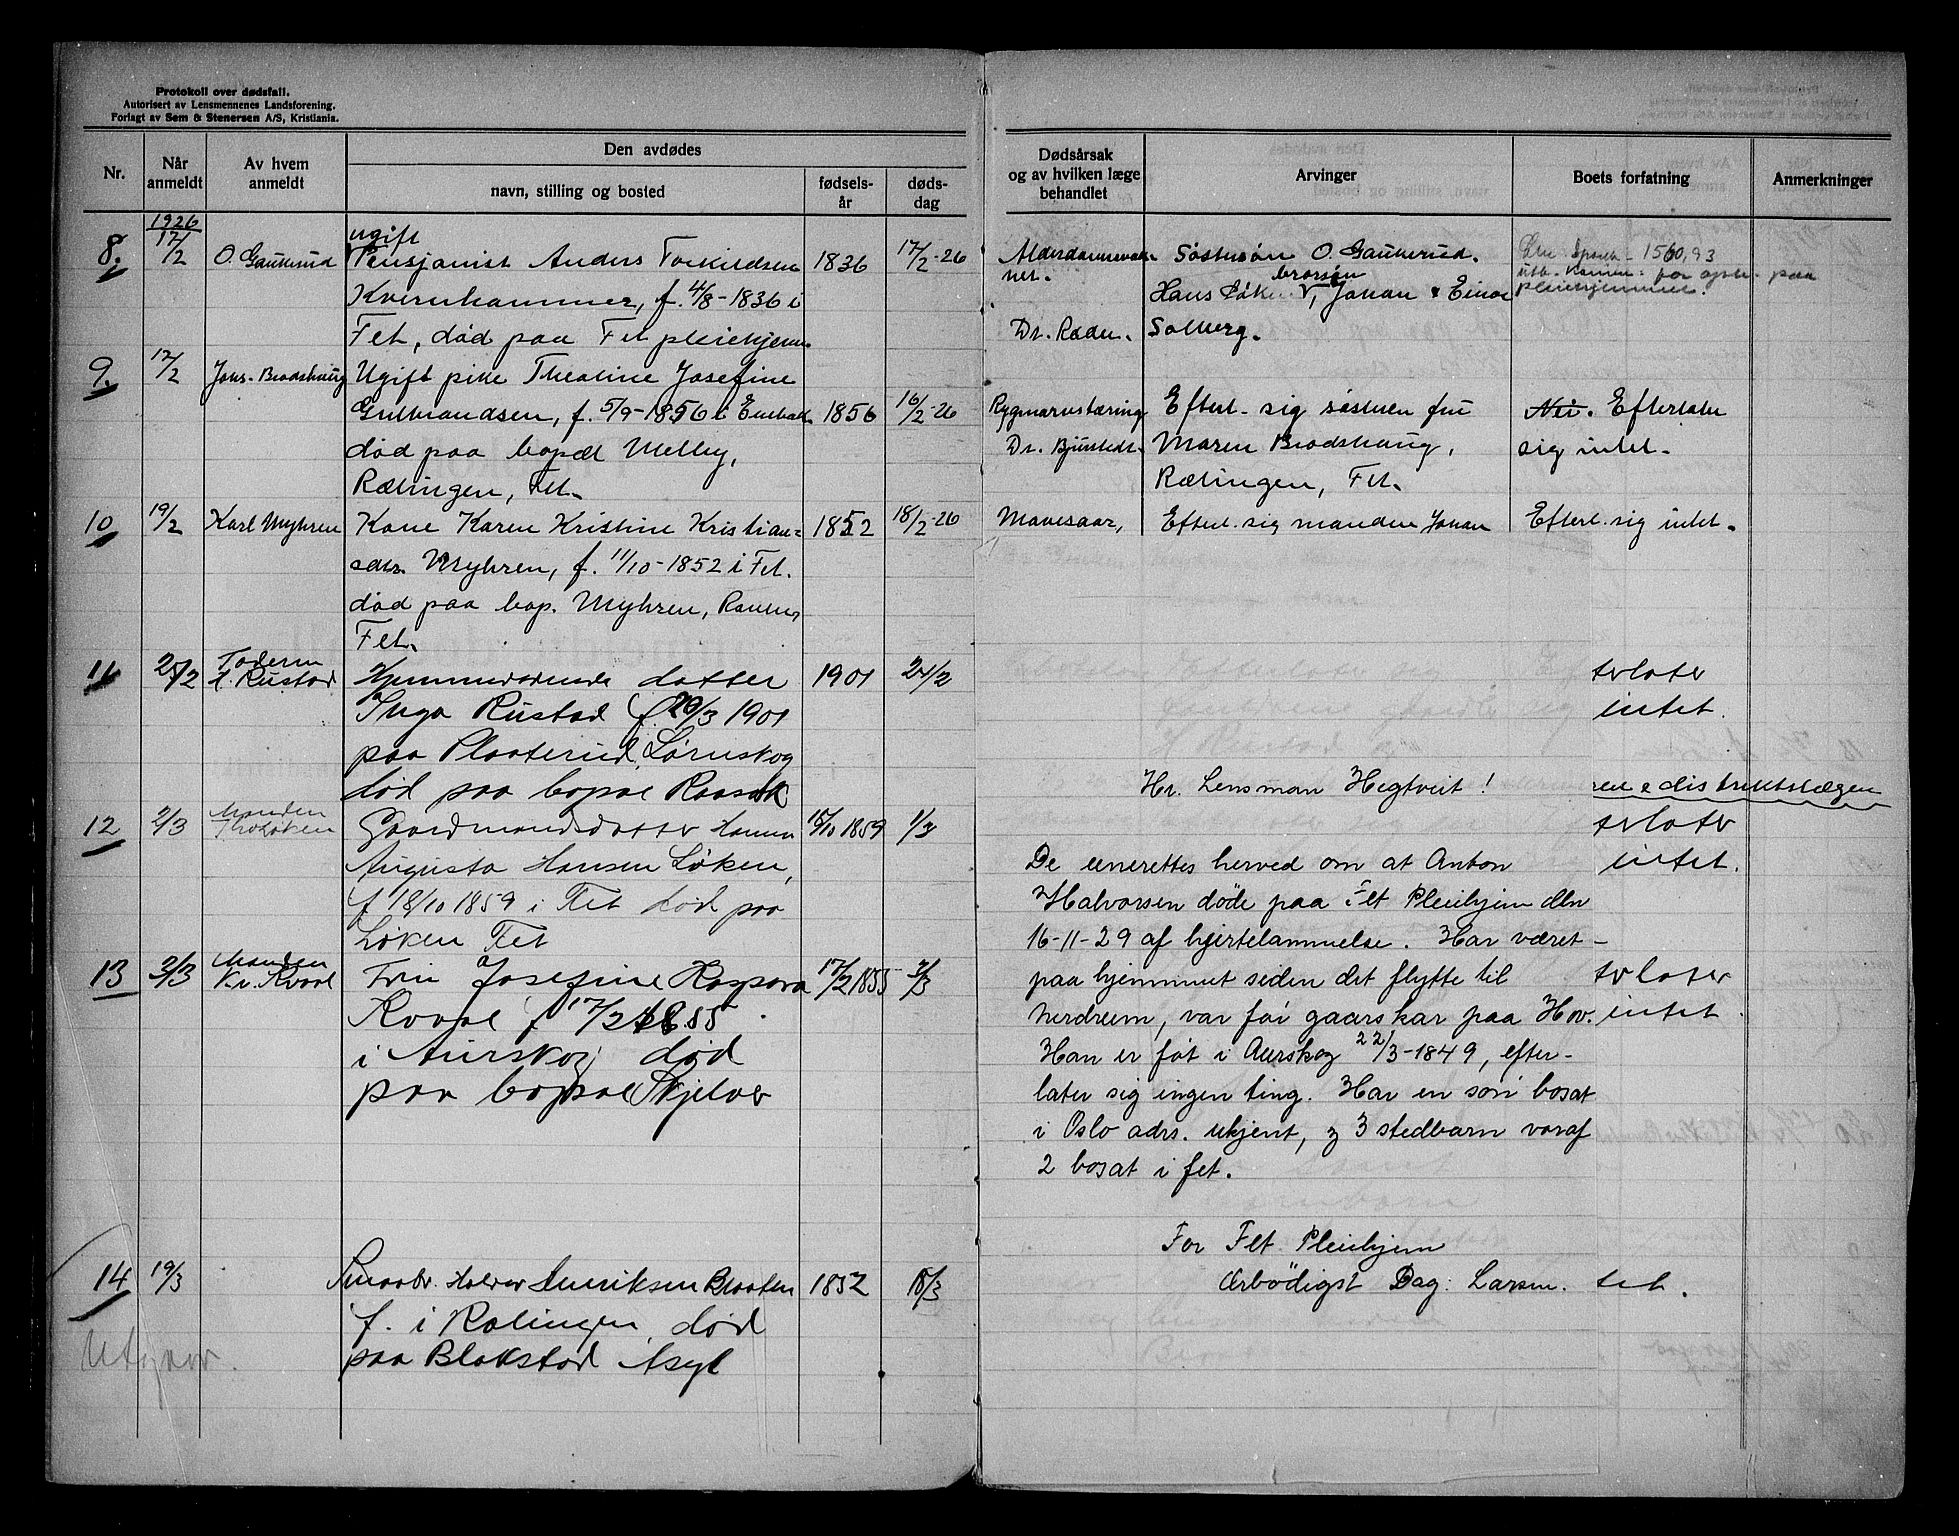 Protokoll over dødsfall.
Autorisert av Lensmennenes Landsforening.
Forlagt av Sem & Stenersen A/S, Kristiania.
Nr.
Når anmeldt
Av hvem anmeldt
Den avdødes
navn, stilling og bosted
fødsels-år
døds-dag
Dødsårsak og av hvilken læge behandlet
Arvinger
Boets forfatning
Anmerkninger
1926
8. 17/2 O. Gauterud
ugift
Pensjonist Anders Torkildsen 1836 17/2-26
Kvernhammer, f. 4/8-1836 i
Fet, død paa Fet pleiehjem.
Søstersøn O. Gauterud.
brorsøn
Hans Løken, Johan & Einar
Dr. Roden. Solberg.
1560,93
paa
pleiehjemmet.
9. 17/2 Johs. Brodshaug Ugift pike Theoline Josefine
Gulbrandsen, f. 5/9-1856 i Enebak 1856 16/2-26
død paa bopæl Melby,
Rælingen, Fet.
Rygmarvstæring Efterl. sig søsteren fru Nei. Efterlater
Dr. Bjørstedt. Maren Brodshaug, sig intet.
Rælingen, Fet.
10 19/2 Karl Myhren Kone Karen Kristine Kristian- 1852 18/2-26
sdtr. Myhren, f. 11/10-1852 i Fet.
død paa bop. Myhren, Roven,
Fet.
Mavesaar, Efterl. sig manden Johan Efterl. sig intet.
11 25/2 Faderen H. Rustad Hjemmeværende datter 1901 24/2
Inga Rustad f. 20/3 1901
paa Plaaterud, Lørnskog
død paa bopæl Raasok
terlater
intet.
12 2/3 Manden Th. Løken Gaardmandsdatter Hanna 15/10 1859 1/3
Augusta Hansen Løken,
f 18/10 1859 i Fet død paa
Løken Fet
ren & distriktslægen
terlater
intet.
13 3/3 Manden Kr. Kvaal Fru Josefine Kaspara 17/2 1855 2/3
Kvaal f 17/2 1855
i Aurskog død
paa bopæl Skjelver
terlater
intet.
14 19/3 Smaabr. Halvor Henriksen Braaten 1852 18/3
f. i Rælingen død
paa Blakstad Asyl
tet.
Utgaar.
Hr. Lensman Hegtveit!
De underettes herved om at Anton
Halvorsen døde paa Fet Pleiehjem den
16-11-29 af hjertelammelse. Har været
paa hjemmet siden det flytte til
Nerdrum, var før gaarskar paa Hov.
Han er føt i Aurskog 22/3-1849, efter-
later sig ingen ting. Har en søn bosat
i Oslo adrs. ukjent, og 3 stedbarn voraf
2 bosat i fet.
For Fet Pleiehjem
Ærbødigst Dag: Larsen.